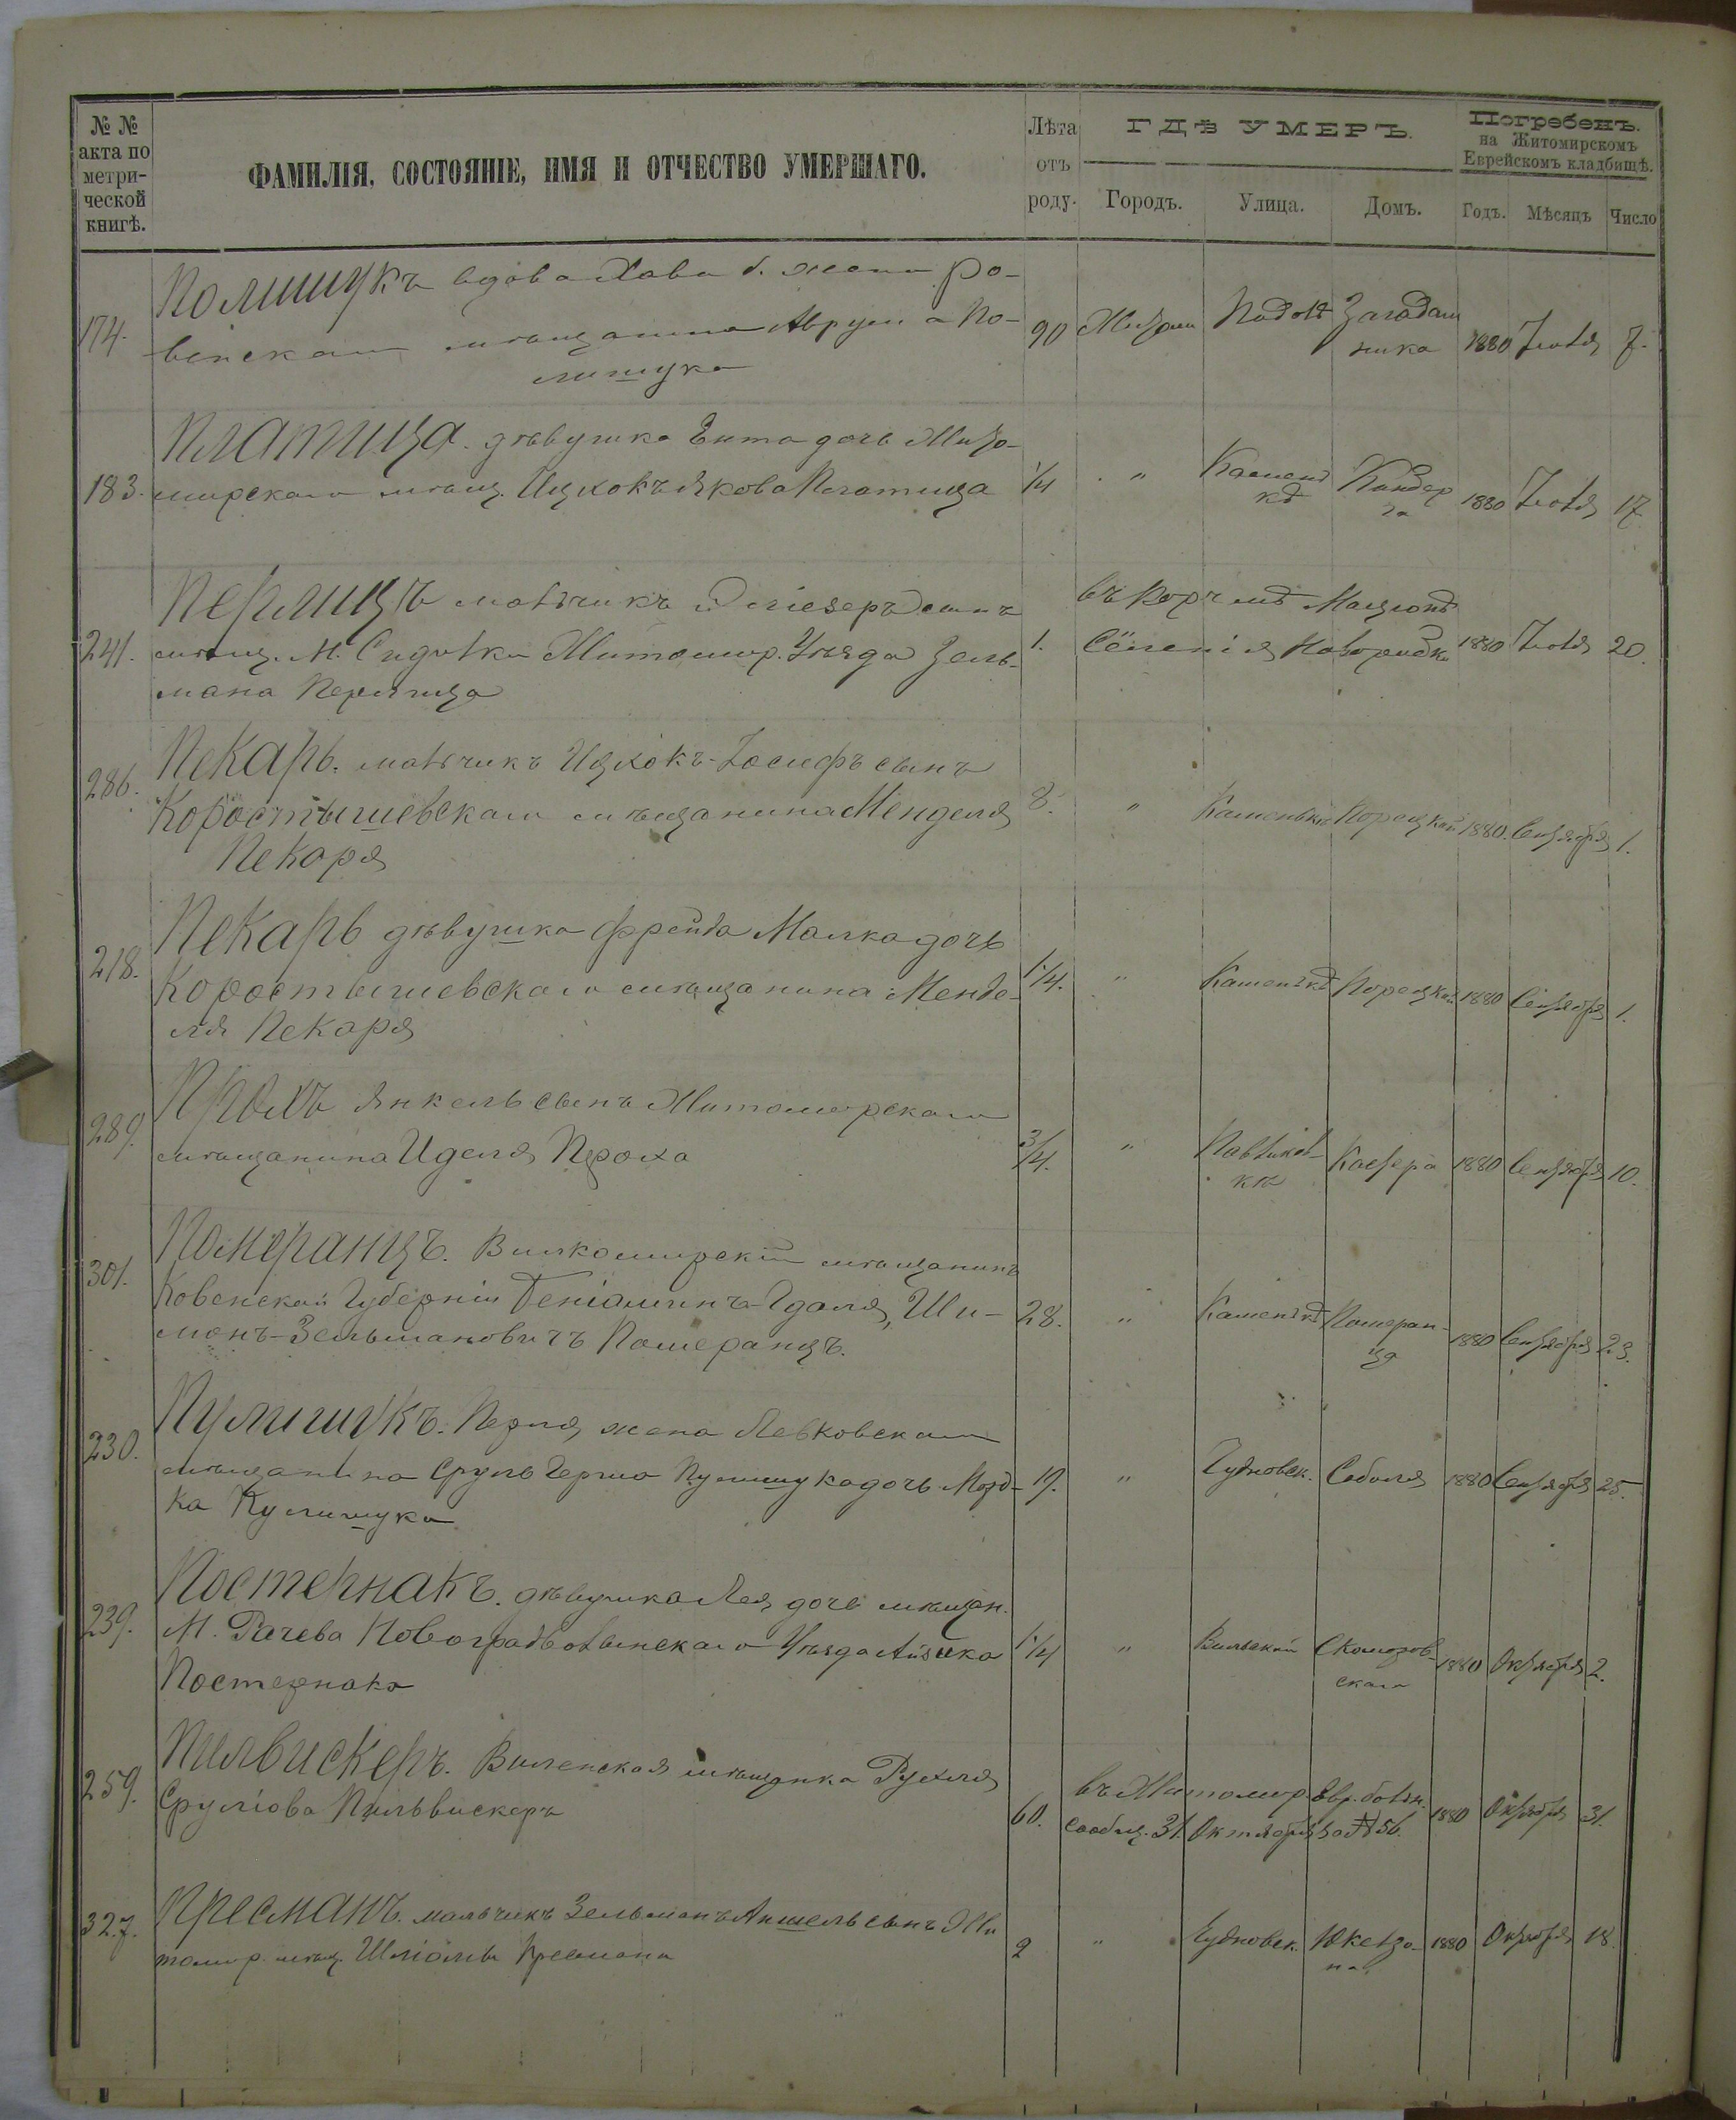 № №
акта по
метри-
ческой
книгѣ.
ФАМИЛІЯ, СОСТОЯНІЕ, ИМЯ И ОТЧЕСТВО УМЕРШАГО.
Лѣта
отъ
роду.
ГДѢ УМЕРЪ.
Городъ.
Улица.
Домъ.
Погребенъ.
на Житомирскомъ
Еврейскомъ кладбищѣ.
Годъ.
Мѣсяцъ
Число
174.
Полишукъ вдова Хава б. жена Ро-
венскаго мѣщанина Аврума По-
лишука
90
Житом
Подол
1880 Іюля 7.
183.
Платица. дѣвушка Ента дочь Жито-
мирскаго мѣщ. Ицхокъ Якова Платица
1/4
"
1880 Іюля 17
241.
Перлицъ мальчикъ Эліезеръ сынъ
мѣщ. М. Житомир. Уѣзда Зель-
мана Перлица
1.
въ корчмѣ
Селенія
1880 Іюля 20.
286.
Пекарь. мальчикъ Ицхокъ-Іосифъ сынъ
Коростышевскаго мѣщанина Менделя
Пекаря
8.
"
Порецкой 1880. Сентября 1.
218.
Пекарь дѣвушка Фрейда Малка дочь
Коростышевскаго мѣщанина Менде-
ля Пекаря
1/4.
"
Порецкой 1880 Сентября 1.
289.
Прохъ Янкель сынъ Житомирскаго
мѣщанина Иделя Проха
3/4.
"
1880 Сентября 10.
301.
Померанцъ. Вилкомирскій мѣщанинъ
Ковенской Губерніи Беніаминъ-Гдаля, Ши-
монъ-Зельмановичъ Померанцъ.
28.
"
Померан-
ца
1880 Сентября 23.
230.
Пулишукъ. Перля жена Левковскаго
мѣщанина Сруль Герша Пулишука дочь Морд-
ка Кулишука
19.
"
Чудновск. Соболя 1880 Сентября 25.
239.
Постернакъ. дѣвушка Лея дочь мѣщан.
М. Рачева Новоградволынскаго Уѣзда Айзика
Постернака
1/4
"
1880 Октября 2.
259.
Пильвискеръ. Виленская мѣщанка Рухля
Сруліова Пильвискеръ
60.
въ Житомир. Евр. больн.
сообщ. 31. Октября за № 56.
1880 Октября 31.
327.
Пресманъ. мальчикъ Зельманъ Аншель сынъ Жи
томир. мѣщ. Шліомы Пресмана
2
"
Чудновск.
1880 Октября 18.